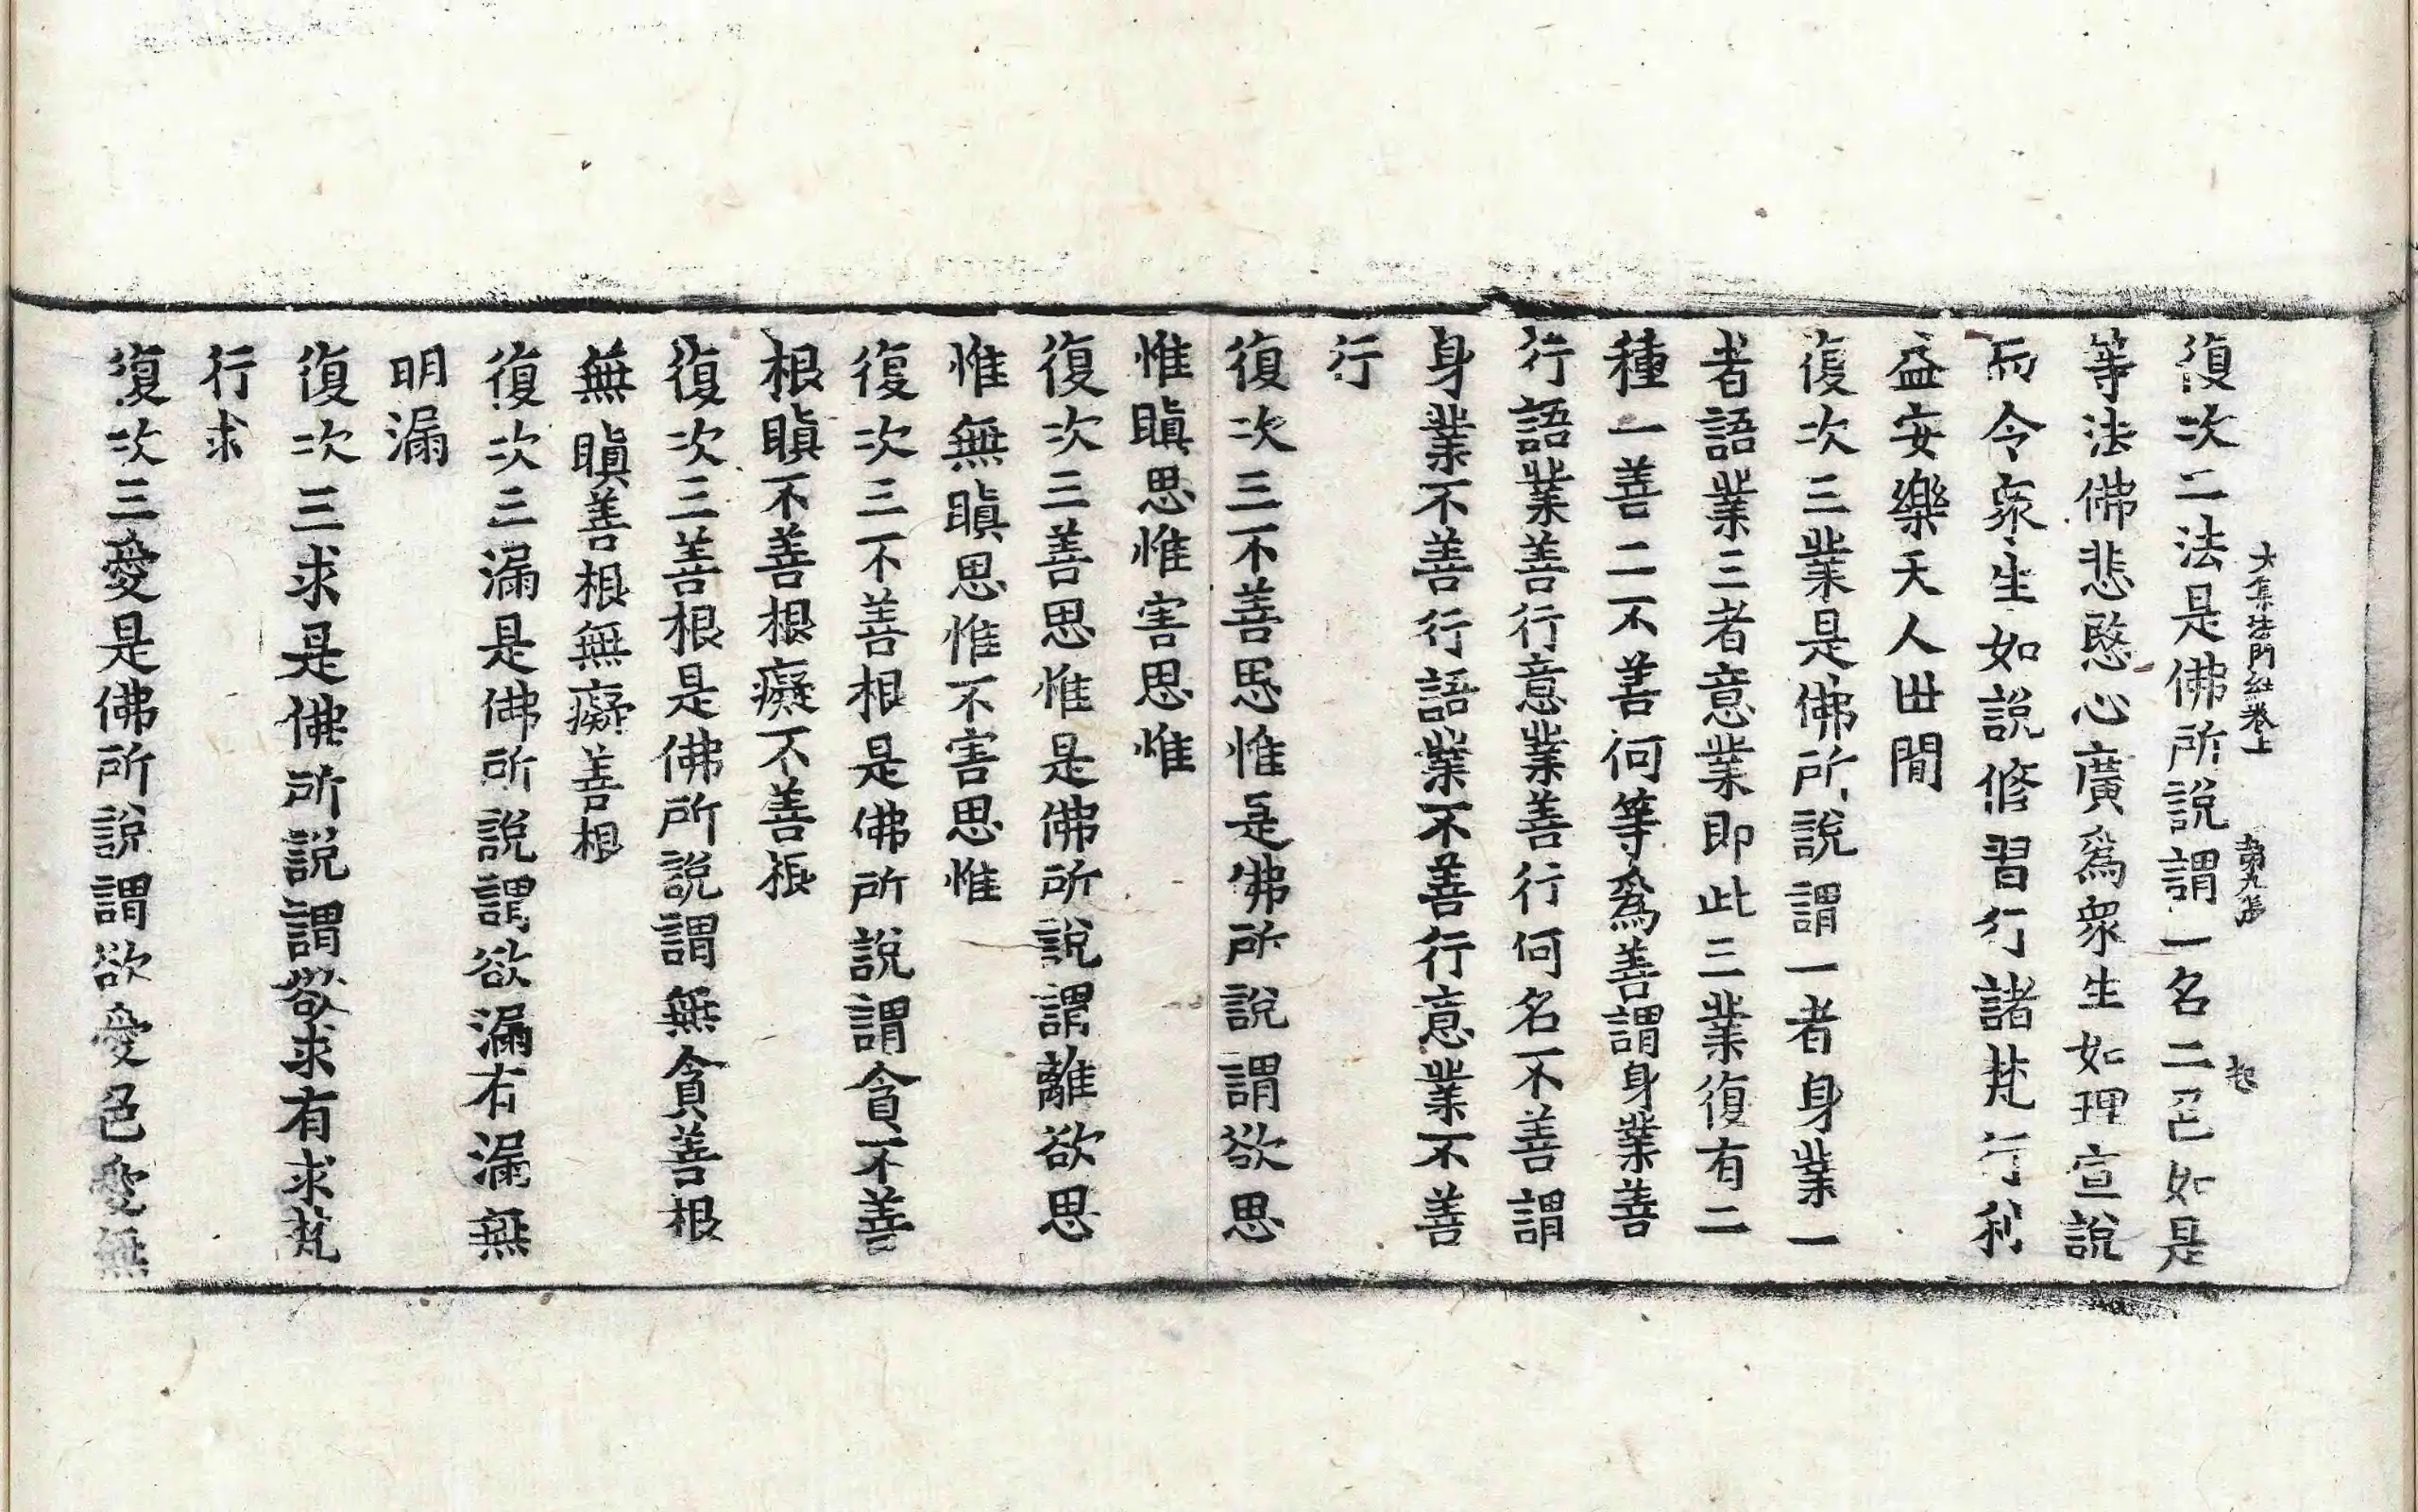 大集法門經卷上 第九張 起
復次二法是佛所說謂一名二色如是
等法佛悲愍心廣爲衆生如理宣說
而令衆生如說修習行諸梵行利
益安樂天人世間
復次三業是佛所說謂一者身業一
者語業三者意業即此三業復有二
種一善二不善何等爲善謂身業善
行語業善行意業善行何名不善謂
身業不善行語業不善行意業不善
行
復次三不善思惟是佛所說謂欲思
惟瞋思惟害思惟
復次三善思惟是佛所說謂離欲思
惟無瞋思惟不害思惟
復次三不善根是佛所說謂貪不善
根瞋不善根癡不善根
復次三善根是佛所說謂無貪善根
無瞋善根無癡善根
復次三漏是佛所說謂欲漏有漏無
明漏
復次三求是佛所說謂欲求有求梵
行求
復次三愛是佛所說謂欲愛色愛無